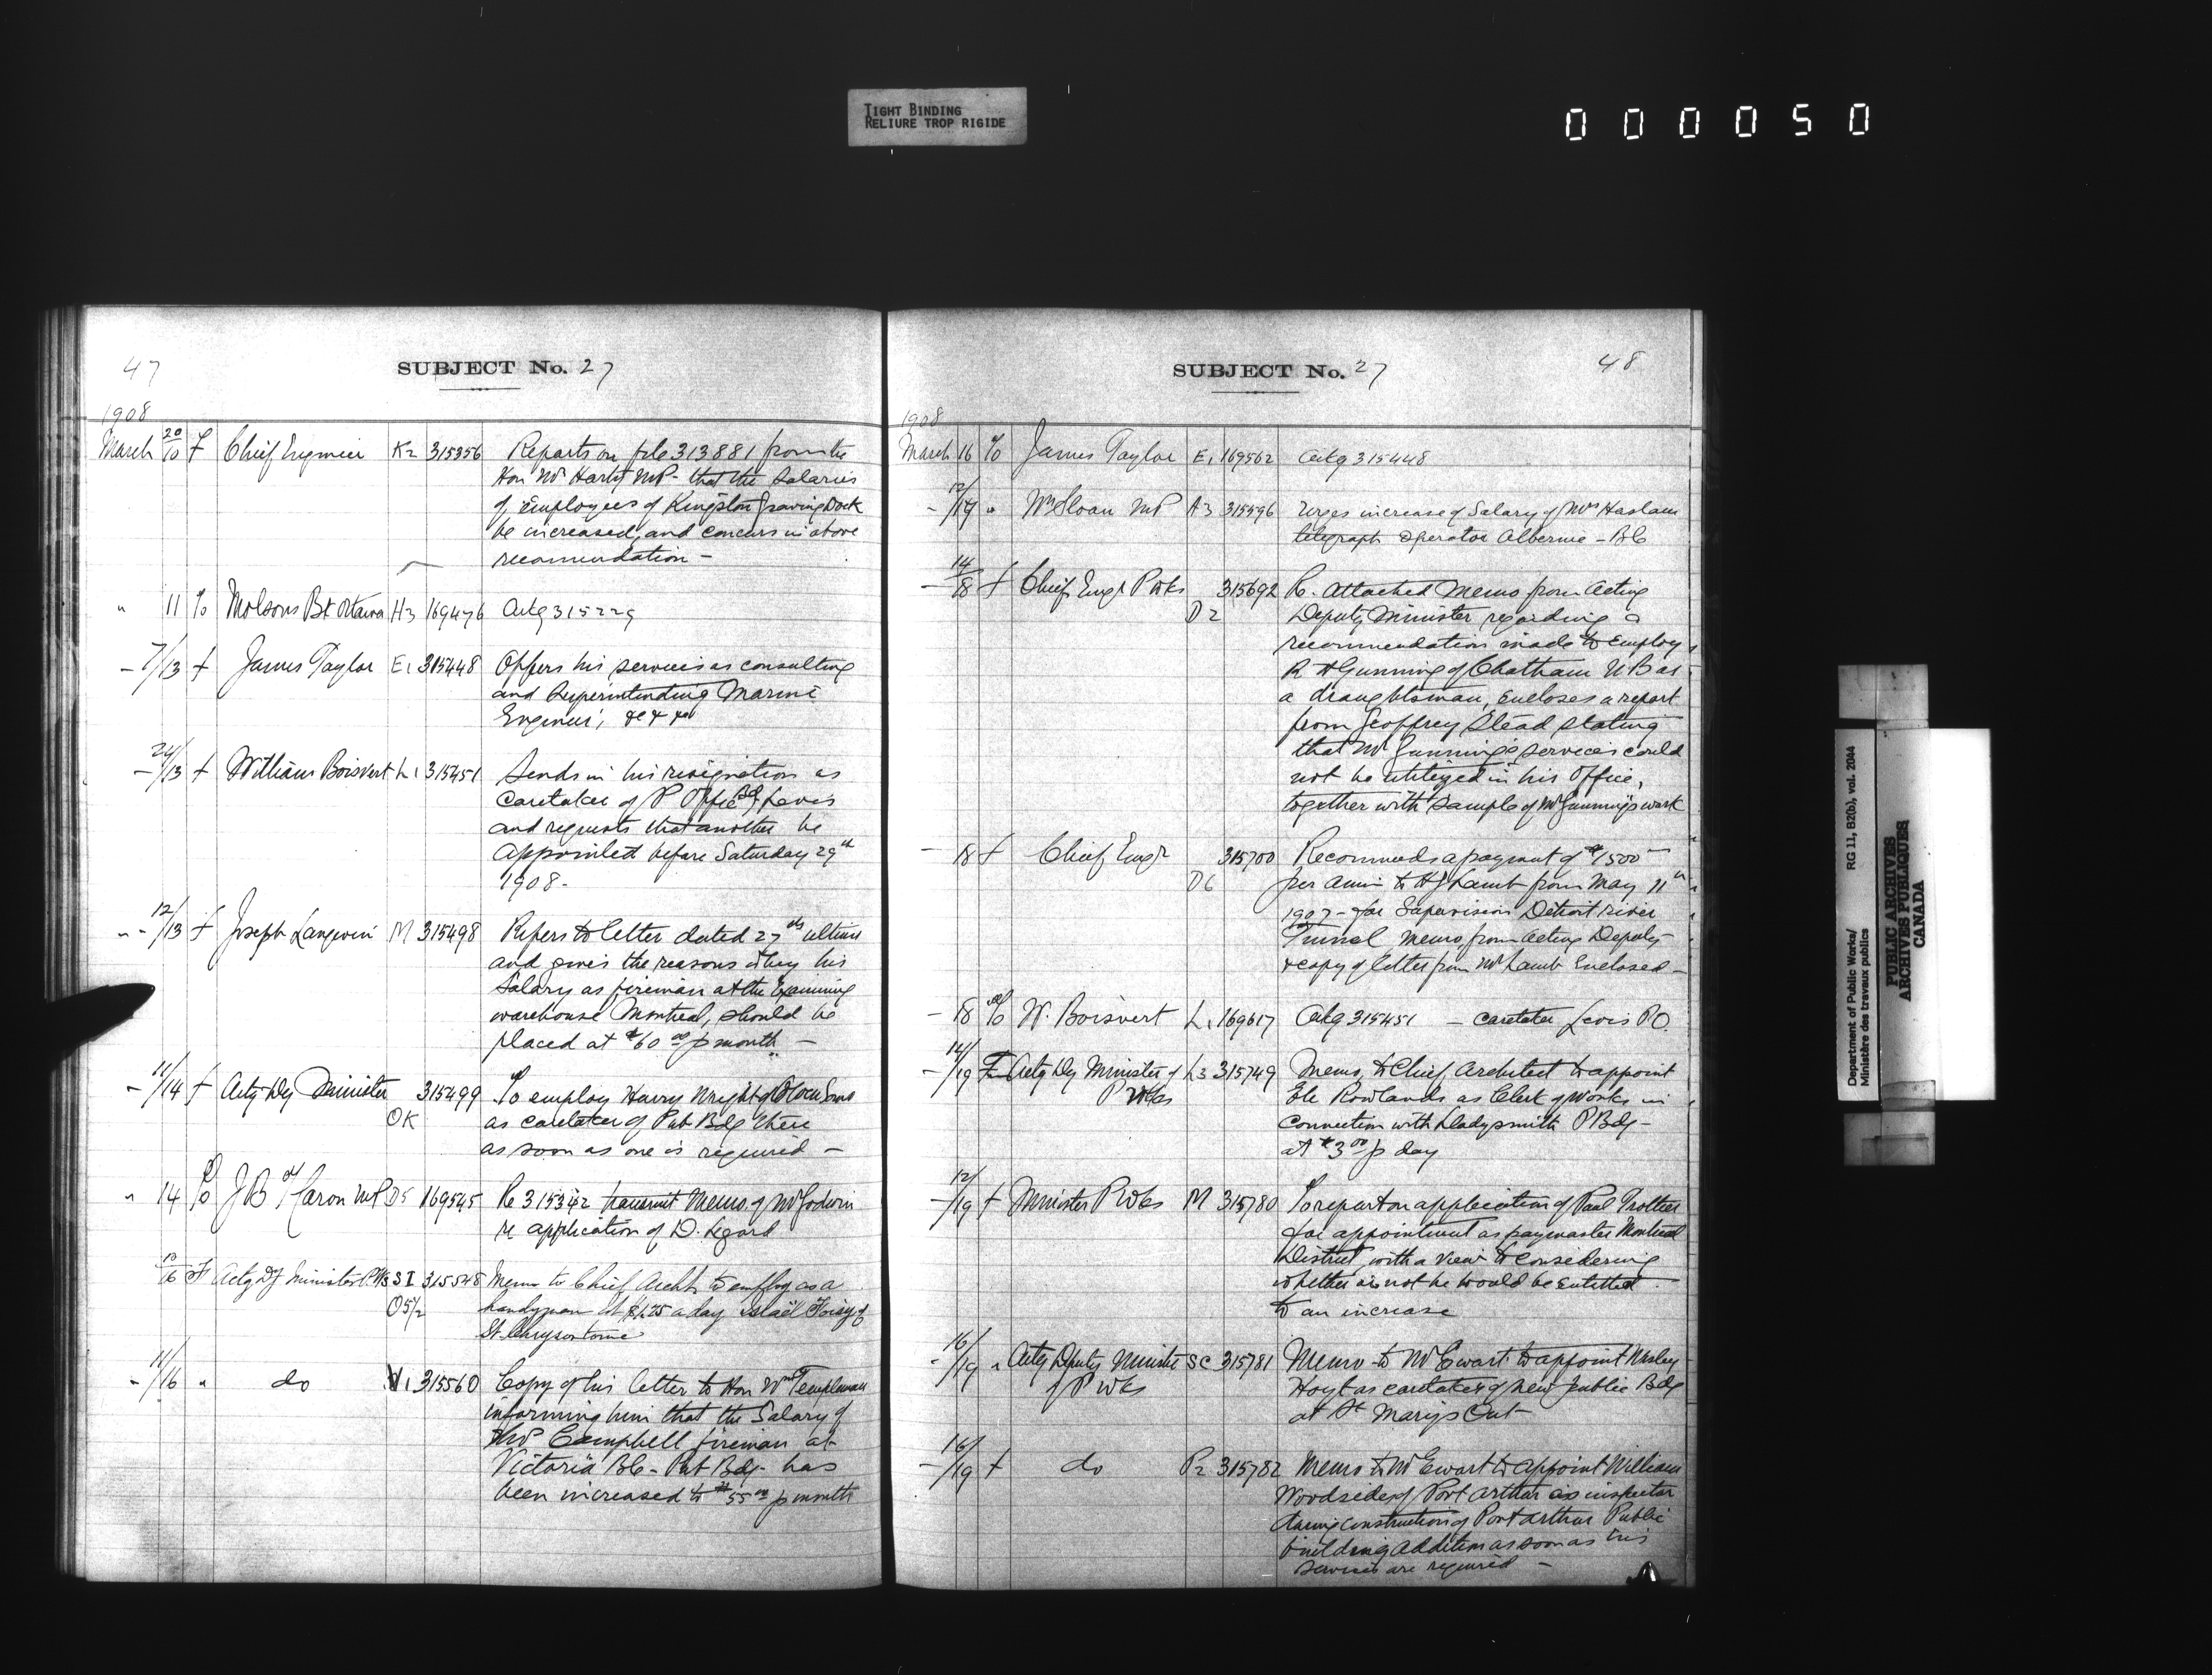 TIGHT BINDING
RELIURE TROP RIGIDE
000050
47
SUBJECT No. 27
1908
March 20/10 F Chief Engineer K2 315356 Reports on file 313881 from the
Hon Mr Harty MP - that the salaries
of employees of Kingston Graving Dock
be increased, and concurs in above
recomendation -
" 11 To Molsons Bk Ottawa H3 169476 Ackg 315229
- 7/13 f James Taylor E1 315448 Offers his services as consulting
and Superintending Marine
Engineer,
- 24/13 f William Boisvert L1 315451 Sends in his resignation as
Caretaker of P Office Bdg Levis
and requests that another be
appointed before Saturday 29th
1908 -
" - 12/13 f Joseph Langevin M 315498 Refers to letter dated 27th ultimo
and gives the reasons why his
Salary as fireman at the Examining
warehouse Montreal, should be
placed at $60 00 p month -
- 11/14 f Actg Dy Minister 315499 To employ Harry Wright of
OK as caretaker of Pub Bdg there
as soon as one is required -
" 14 To J B H Caron MP D5 169545 Re 315342 transmit Memo. of Mr Godwin
re application of D. Legard
10/16 F Actg Dy Minister P.Wks S I 315548 Memo to Chief Archt to employ as a
O5 1/2 handyman at $1.25 a day Israël Foisy of
St Chrysostome
- 11/16 " do V1 315560 Copy of his letter to Hon Wm Templeman
informing him that the Salary of
Mr Campbell fireman at
Victoria BC - Pub Bdg - has
been increased to $55 00 p month
SUBJECT No. 27
48
1908
March 16 To James Taylor E1 169562 Ackg 315448
- 12/17 " Wm Sloan MP A3 315596 Urges increase of Salary of Mrs Haslam
telegraph operator Alberni - BC
- 14/18 f Chief Engr P Wks 315692 Re. attached Memo from Acting
D2 Deputy Minister regarding a
recommendation made to employ
R H Gunning of Chatham N B as
a draughtsman, encloses a report
from Geoffrey Stead stating
that Mr Gunning's services could
not be utilized in his Office,
together with sample of Mr Gunning's work
- 18 f Chief Engr 315700 Recommends a payment of $1500
D6 per annm to H J Lamb from May 11th
1907 - for Supervision Detroit River
Tunnel Memo from Acting Deputy
& copy of letter from Mr Lamb Enclosed -
- 18 To W. Boisvert L1 169617 Ackg 315451 - caretaker Levis P.O.
- 14/19 F Actg Dy Minister of L3 315749 Memo, to Chief Architect to appoint
P Wks Eli Rowlands as Clerk of Works in
Connection with Ladysmith P Bdg -
at $3 00 p day
- 12/19 f Minister P Wks M 315780 To report on application of Paul Trottier
for appointment as paymaster Montreal
District, with a view to considering
whether or not he would be entitled
to an increase
- 16/19 " Actg Deputy Minister SC 315781 Memo - to Mr Ewart to appoint Wesley
of P Wks Hoyt as caretaker of new Public Bdg
at St Mary's Ont -
- 16/19 f do P2 315782 Memo to Mr Ewart to appoint William
Woodside of Port Arthur as inspector
during construction of Port Arthur Public
building addition as soon as his
services are required -
Department of Public Works/ RG 11, B2(b), vol. 2044
Ministère des travaux publics
PUBLIC ARCHIVES
ARCHIVES PUBLIQUES
CANADA